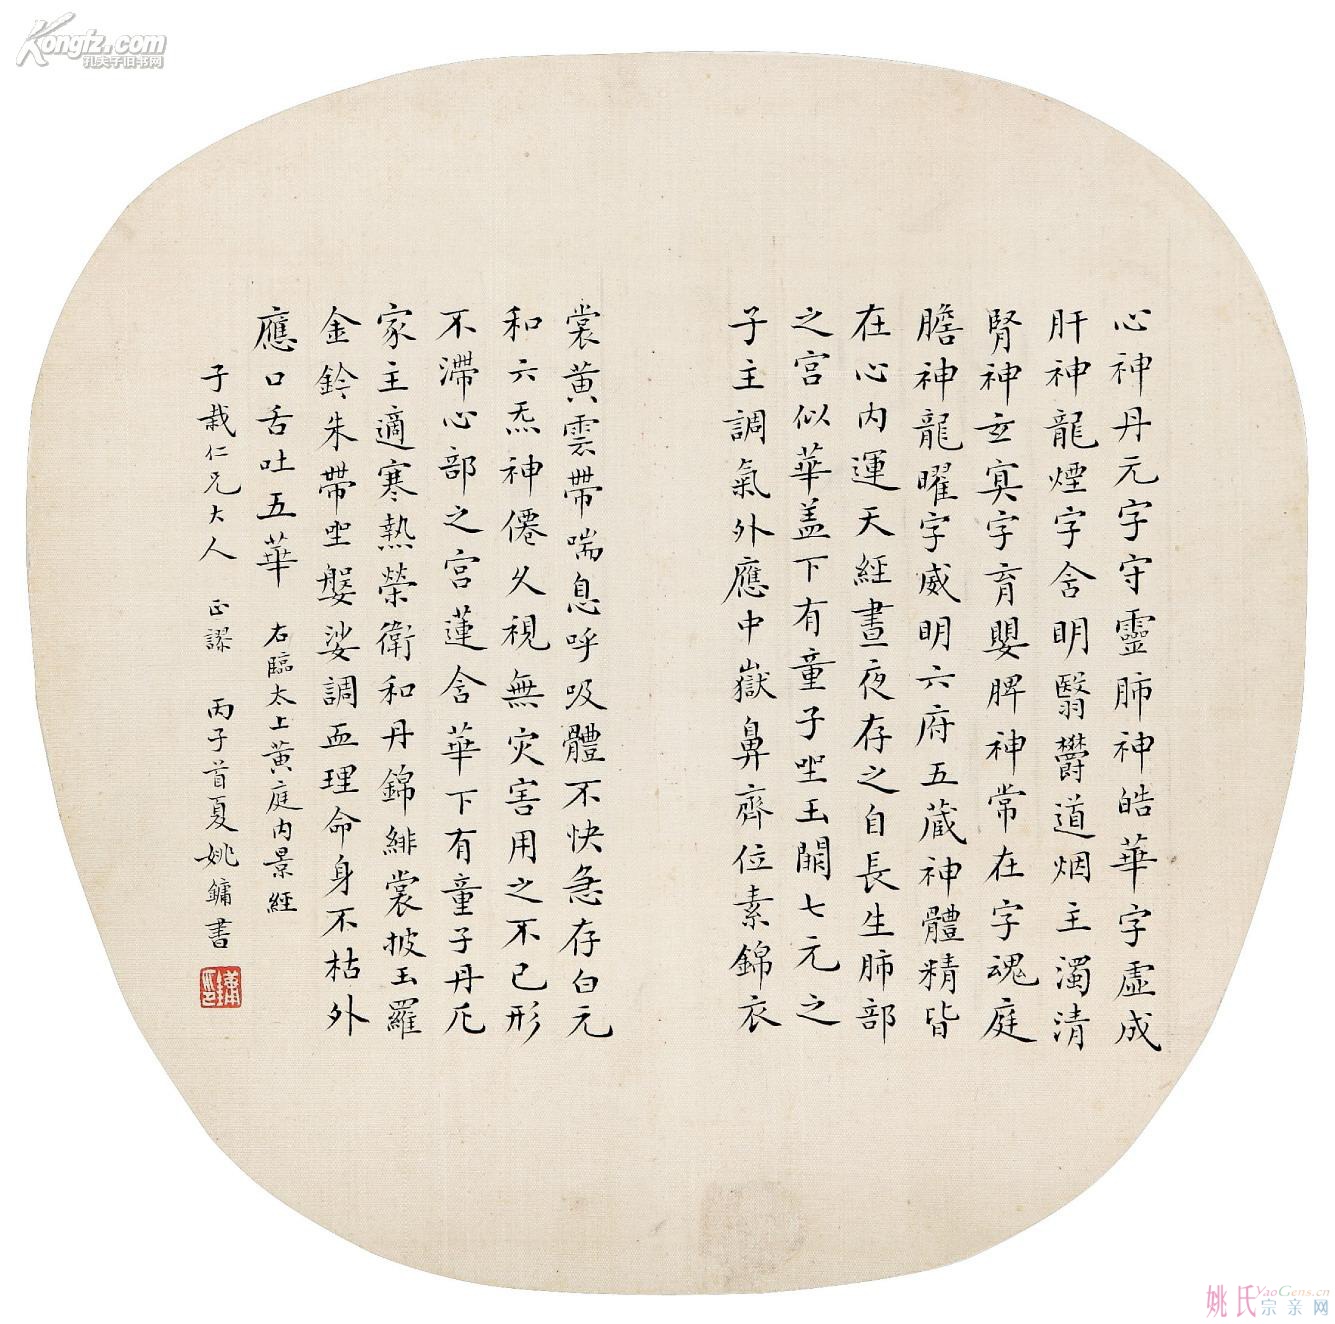 Kongfz.com
孔夫子旧书网
心神丹元字守靈肺神皓華字虛成
肝神龍煙字含明翳鬱道烟主濁清
腎神玄冥字育嬰脾神常在字魂庭
膽神龍曜字威明六府五蔵神體精皆
在心内運天經晝夜存之自長生肺部
之宮似華盖下有童子坐玉闕七元之
子主調氣外應中嶽鼻齊位素錦衣
裳黄雲帶喘息呼吸體不快急存白元
和六炁神僊久視無灾害用之不已形
不滯心部之宮蓮含華下有童子丹元
家主適寒熱榮衛和丹錦緋裳披玉羅
金鈴朱帶坐婜娑調血理命身不枯外
應口舌吐五華 右臨太上黄庭内景經
子栽仁兄大人 正謬 丙子首夏姚鏞書
姚氏宗亲网
YaoGens.cn